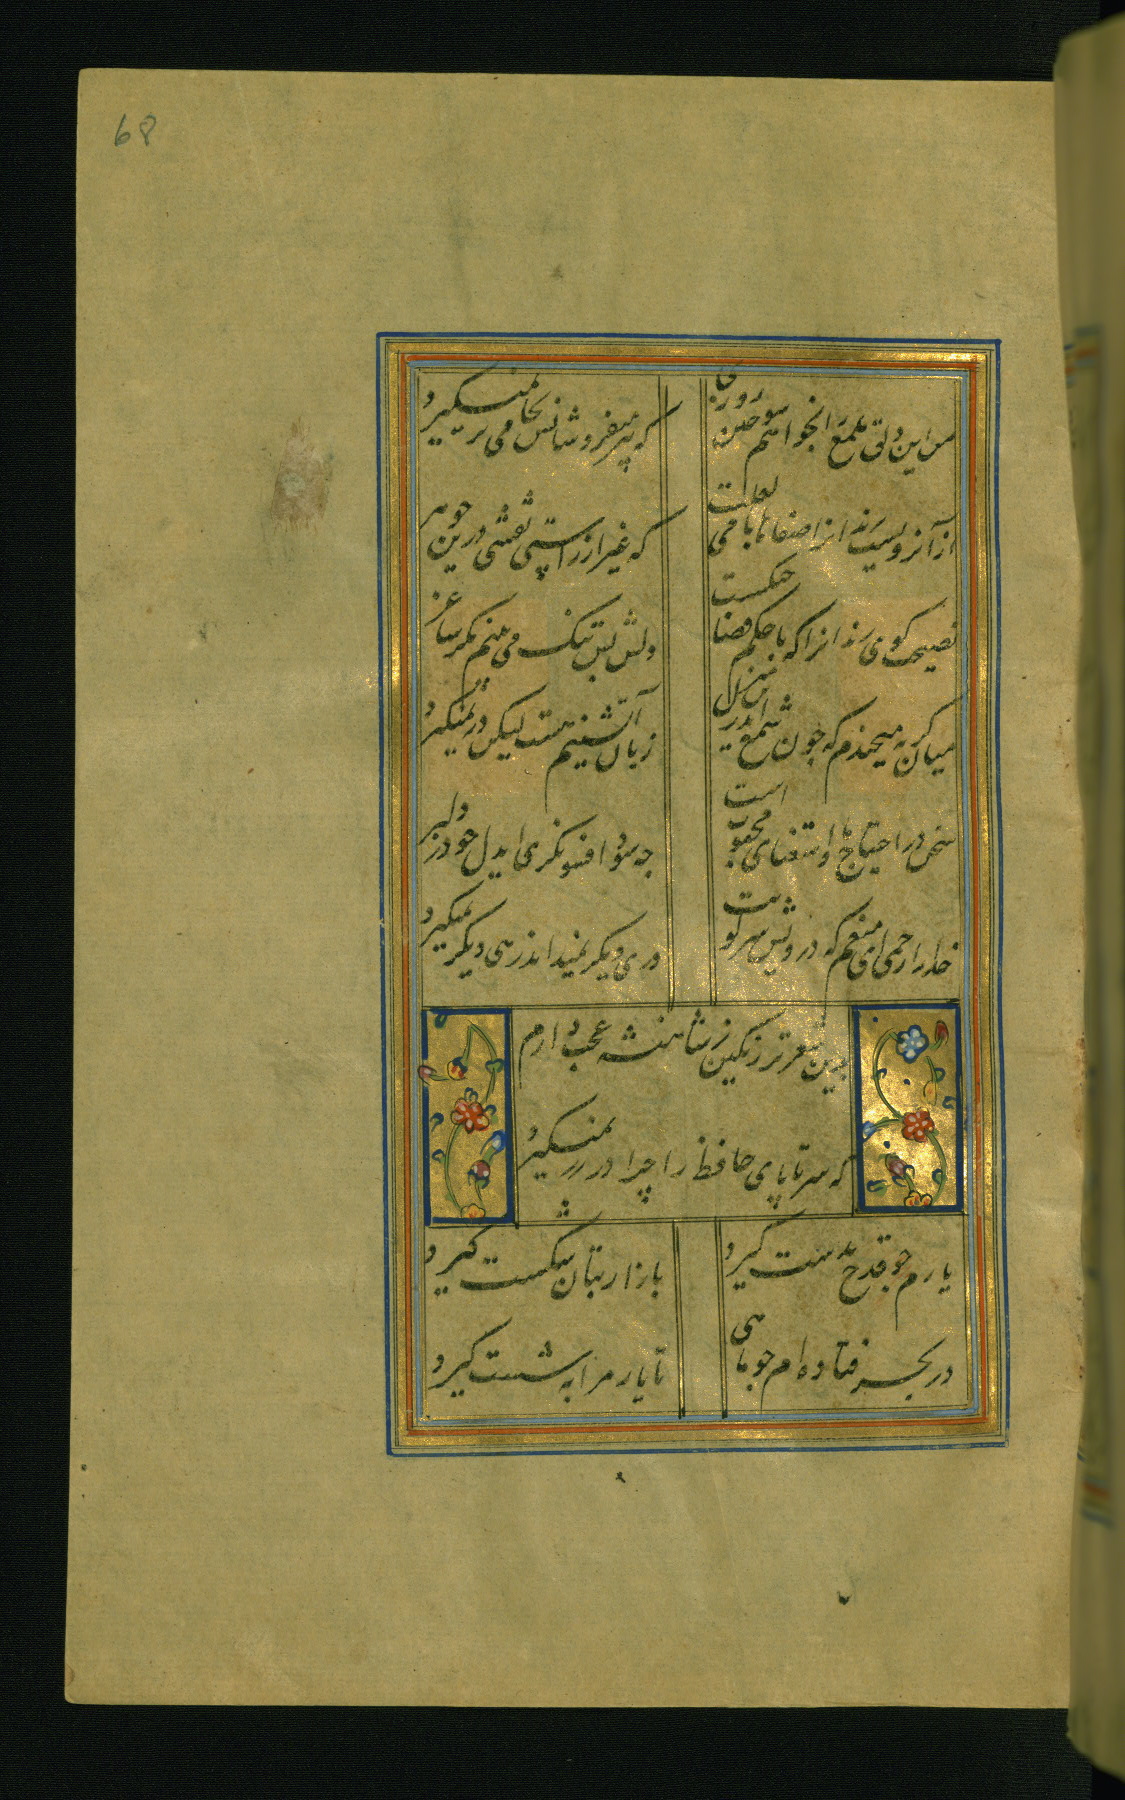 68
من این دلق ملمع را نخواهم سوختن روزی
که پیر میفروشانش بجامی بر نمیگیرد
از آنرو هست رندانرا صفاها با می لعلت
که غیر از راستی نقشی درین جوهر
نصیحت گوی رندانرا که با حکم قضا جنکست
دلش بس تنک می بینم مکر ساغر
میان کریه میخندم که چون شمع اندرین مجلس
زبان آتشینم هست لیکن در نمیگیرد
سخن در احتیاج ما و استغنای محبوب است
چه سود افسونکری ایدل چو در دلبر
خدا را رحمی ای منعم که درویش سر کویت
دری دیکر نمیداند رهی دیکر نمیگیرد
بدین شعر تر رنکین ز شاهنشه عجب دارم
که سر تا پای حافظ را چرا در زر نمیگیرد
یارم چو قدح بدست گیرد
بازار بتان شکست گیرد
در بحر فتاده ام چو ماهی
تا یار مرا به شست گیرد